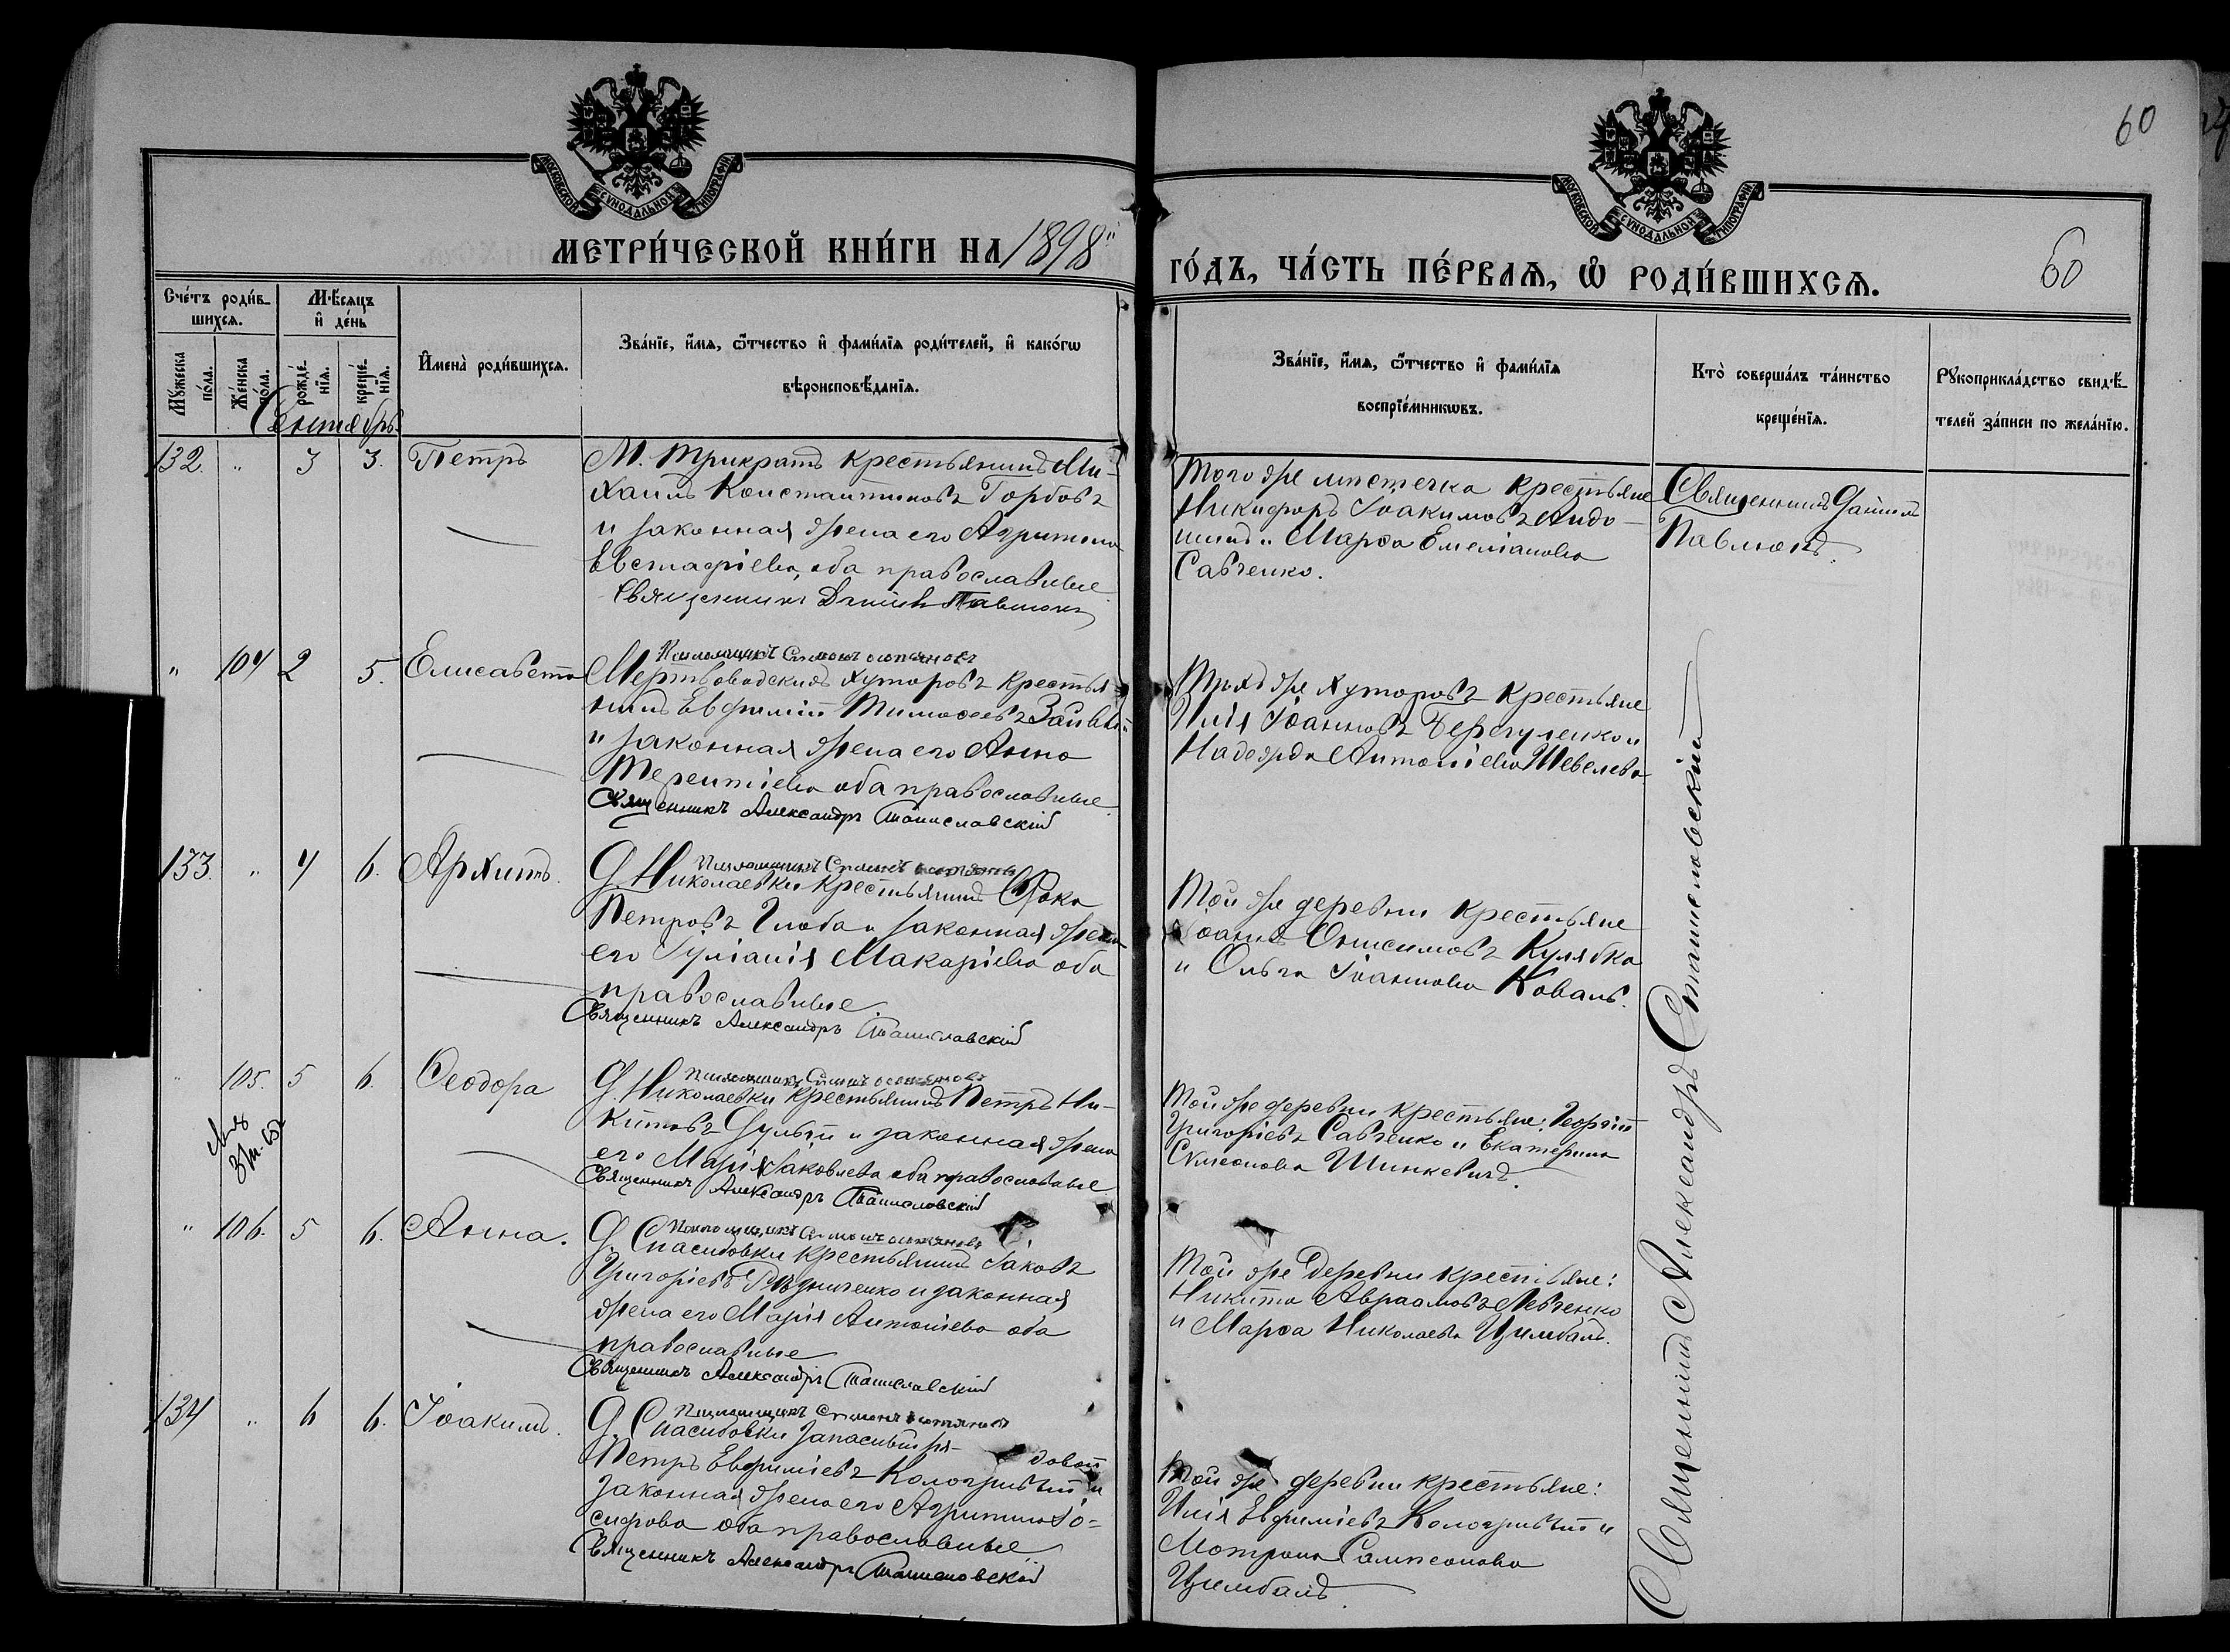 60
60
МОСКОВСКОЙ СУНОДАЛЬНОЙ ТИПОГРАФІИ
МОСКОВСКОЙ СУНОДАЛЬНОЙ ТИПОГРАФІИ
МЕТРИ́ЧЕСКОЙ КНИ́ГИ НА 1898
ГО́ДЪ, ЧА́СТЬ ПЕ́РВАѦ, Ѡ҆ РОДИ́ВШИХСѦ.
Сче́тъ роди́в-
шихсѧ.
Мѣ́сѧцъ
и҆ де́нь
Мꙋ́жеска по́ла.
Же́нска по́ла.
рожде́нїѧ.
креще́нїѧ.
И҆мена̀ роди́вшихсѧ.
Зва́нїе, и҆́мѧ, ѻ҆́тчество и҆ фами́лїѧ роди́телей, и҆ како́гѡ
вѣроисповѣ́данїѧ.
Зва́нїе, и҆́мѧ, ѻ҆́тчество и҆ фами́лїѧ
воспрїе́мникѡвъ.
Кто̀ соверша́лъ та́инство
креще́нїѧ.
Рꙋкоприкла́дство свидѣ́-
телей за́писи по жела́нїю.
Сентябрь
132. " 3 3. Петръ
М. Трикратъ крестьянинъ Ми-
хаилъ Константиновъ Горбовъ
и законная жена его Агрипина
Евстафіева, оба православные
Священникъ Даніилъ Павлюкъ
Того же местечка крестьяне
Никифоръ Іоакимовъ
и Марѳа Емеліанова
Савченко.
Священникъ Даніилъ
Павлюкъ.
" 104 2 5. Елисавета
Псаломщикъ Симонъ
Мертвоводскихъ хуторовъ крестья
нинъ Евфимій Тимоѳеевъ
и законная жена его Анна
Терентіева оба православные
Священникъ Александръ Станиславскій
Тѣхъ же хуторовъ крестьяне
Илія Іоанновъ и
Надежда Антоніева Шевелева
133. " 4 6. Архипъ.
Псаломщикъ Симонъ
Д. Николаевки крестьянинъ Ѳока
Петровъ Глоба и законная жена
его Іуліанія Макаріева оба
православные
Священникъ Александръ Станиславскій
Той же деревни крестьяне
Іоаннъ Онисимовъ Кулябка
и Ольга Іоаннова Коваль.
105. 5 6. Ѳеодора
Псаломщикъ Симонъ
Д. Николаевки крестьянинъ Петръ Ни-
китовъ и законная жена
его Марія Іаковлева оба православные
Священникъ Александръ Станиславскій
Той же деревни крестьяне: Георгій
Григоріевъ Савченко и Екатерина
Симеонова Шинкевичъ.
" 106. 5 6. Анна.
Псаломщикъ Симонъ
Д. Спасибовки крестьянинъ Іаковъ
Григоріевъ и законная
жена его Марія Антоніева оба
православные
Священникъ Александръ Станиславскій
Той же деревни крестьяне:
Никита Авраамовъ Левченко
и Марѳа Николаева Цимбалъ.
134 " 6 6. Іоакимъ.
Псаломщикъ Симонъ
Д. Спасибовки запасный ря-
довой
Петръ Евфиміевъ Кологривый и
законная жена его Агрипина Іо-
сифова оба православные
Священникъ Александръ Станиславскій
Той же деревни крестьяне:
Илія Евфиміевъ Кологривый и
Мотрона Сампсонова
Цимбалъ.
Священникъ Александръ Станиславскій